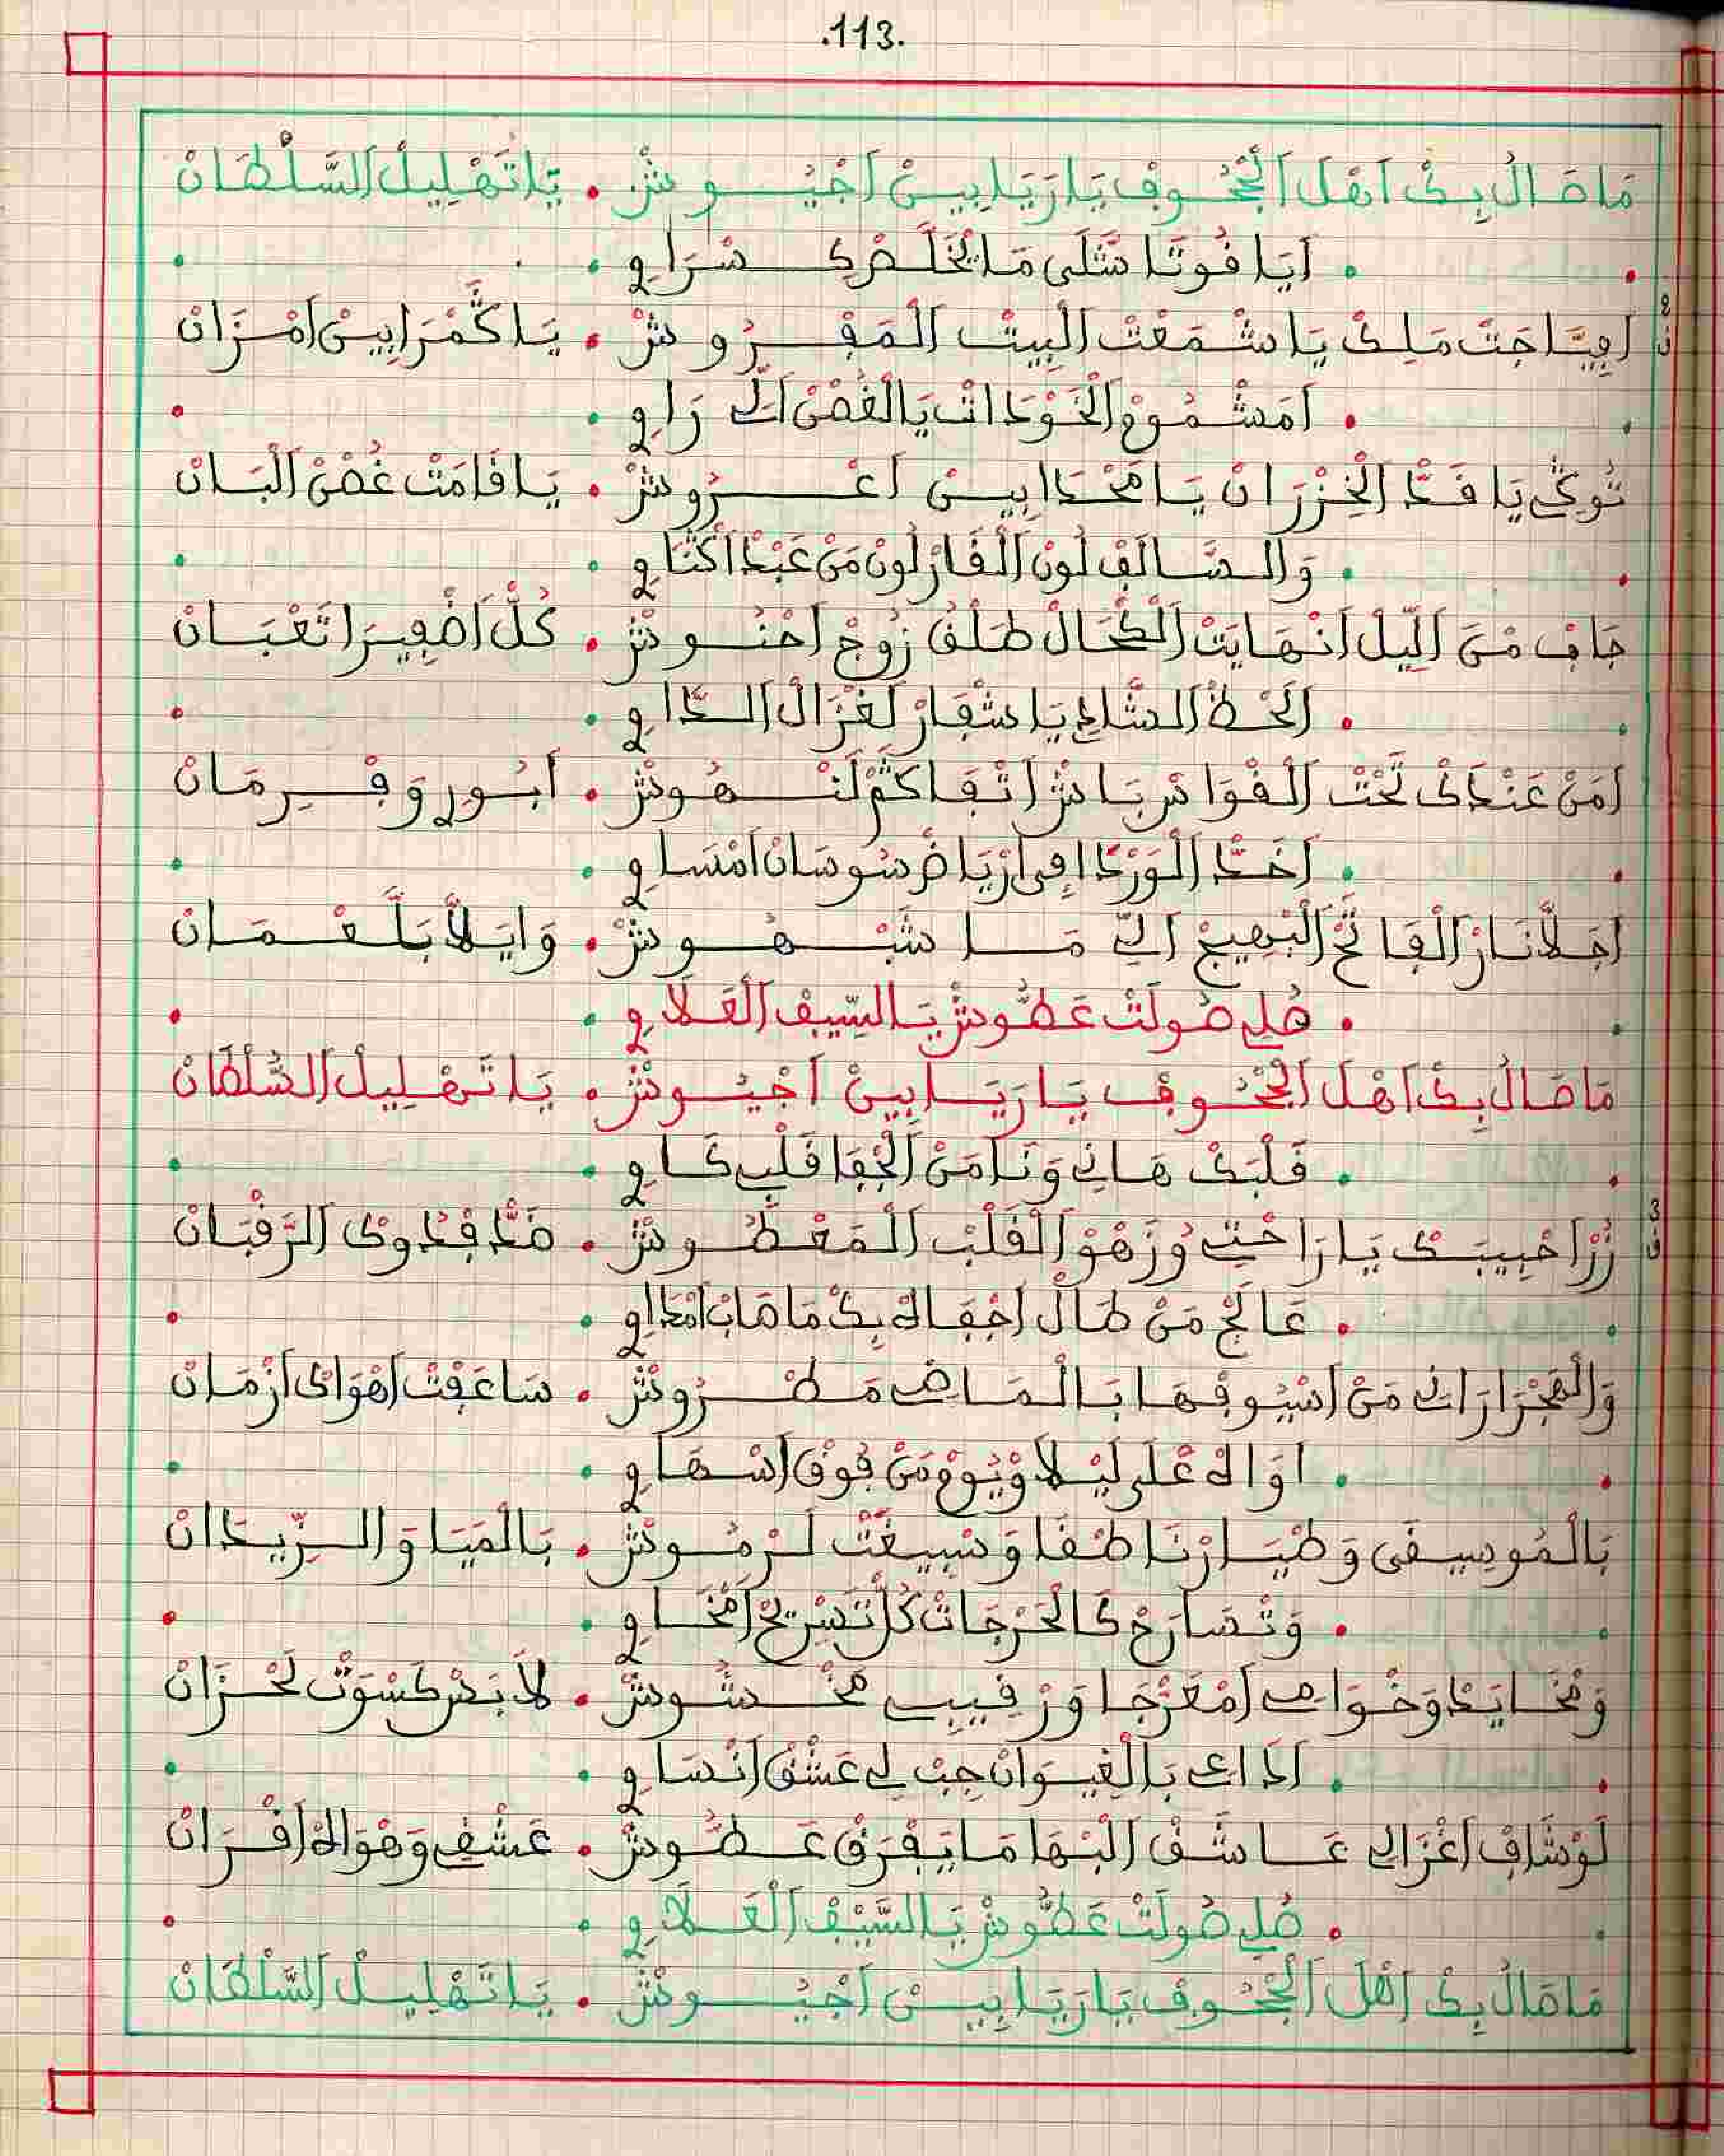 .113.
مَاصَالْ بِكْ اَهْلَ اَلْجْحُوفْ يَا رَيَا بِينْ اَجْيُوشْ . يَا تَهْلِيلْ اَلسَّلْطَانْ
. اَيَا فُوتَا شَلَى مَا يْخَلَّصْ كَسْرَاوِي .
يَا شَمْعَتْ اَلْبِيتْ اَلْمَفْرُوشْ . يَا كَمْرَا بِينْ اَمْزَانْ
. اَمَشْمُومْ اَلْخَوْدَاتْ يَا لْغُصْنْ رَاوِي .
تُوكِي يَا قَدّْ اَلْخِزْرَانْ يَا مَحْدَا بِينْ اَعْرُوشْ . يَا قَامَتْ غُصْنْ اَلْبَانْ
. وَالسَّالَفْ لُونْ اَلْقَارْ لُونْ مَنْ عَبْدْ اَكْنَاوِي .
جَافِ مْنَ اَللِّيلْ اَنْهَايَتْ اَلْكْحَالْ طَلْقُ زُوجْ اَحْنُوشْ . كُلّْ اَضْفِيرَا تَعْبَانْ
. اَلَحْظْ اَلشَّادِي يَا شْفَارْ لَغْزَالْ اَلدَّاوِي .
اَمَنْ عَنْدَكْ تَحْتْ اَلْقْوَاسْ بَاشْ اَتْفَاكَمْ لَنْهُوشْ . اَبُورِي وَفِرْمَانْ
. اَخَدّْ اَلْوَرْدَا فِي اَرْيَاضْ سُوسَانْ اَمْسَاوِي .
اَجَلَّنَارْ اَلْفَاتَحْ اَلْبْهِيجْ اَلِّي مَا شَبْهُوشْ . وَايَلَّا بَلَّعْمَانْ
. صُلِي صُولَتْ عَطُّوشْ يَا السِّيفْ اَلْعَلَاوِي .
مَاصَالْ بِكْ اَهْلَ اَلْجْحُوفْ يَا رَيَا بِينْ اَجْيُوشْ . يَا تَهْلِيلْ اَلسَّلْطَانْ
. قَلْبَكْ هَانِي وَنَا مَنْ اَلْجْفَا قَلْبِي كَاوِي .
زُرْ اَحْبِيبَكْ يَا رَاحْتِي وُزَهْوْ اَلْقَلْبْ اَلْمَعْطُوشْ . ضَدّْ فْدُوكْ اَلرَّقْبَانْ
. عَالَجْ مَنْ طَالْ اَجْفَاكْ بِكْ مَا صَابْ اَمْدَاوِي .
وَالْهَجْرَا رَانِي مَنْ اَسْيُوفْهَا بَالْمَاضِي مَطْرُوشْ . سَاعَفْتْ اَهْوَاكْ اَزْمَانْ
. اَوَاكْ عْلَى لَيْلَا وْيُومْ مَنْ فُوقْ اَسْهَاوِي .
بَالْمُوسِيقَى وَطْيَارْنَا طْفَا وَسِيغَتْ لَرْمُوشْ . بَالْمَيَا وَالزِّيدَانْ
. وَتْصَارَحْ كَالْحَرْجَاتْ كُلّْ تَسْرِيحْ اَمْخَاوِي .
وَمْخَايَدْ وَخْوَامِي اَمْعَرْجَا وَرْقِيبِي مَخْشُوشْ . لَابَسْ كَسْوَتْ لَحْزَانْ
. اَدَاعِي بَالْغِيوَانْ جِبْ لِي عَشْقْ اَنْسَاوِي .
لَوْ شَافْ اَغْزَالِي عَاشَقْ اَلْبْهَا مَا يَفْرَقْ عَطُّوشْ . عَشْقِي وَهْوَاكْ اَقْرَانْ
. صُلِي صُولَتْ عَطُّوشْ يَا السَّيْفْ اَلْعَلَاوِي .
مَاصَالْ بِكْ اَهْلَ اَلْجْحُوفْ يَا رَيَا بِينْ اَجْيُوشْ . يَا تَهْلِيلْ اَلسَّلْطَانْ